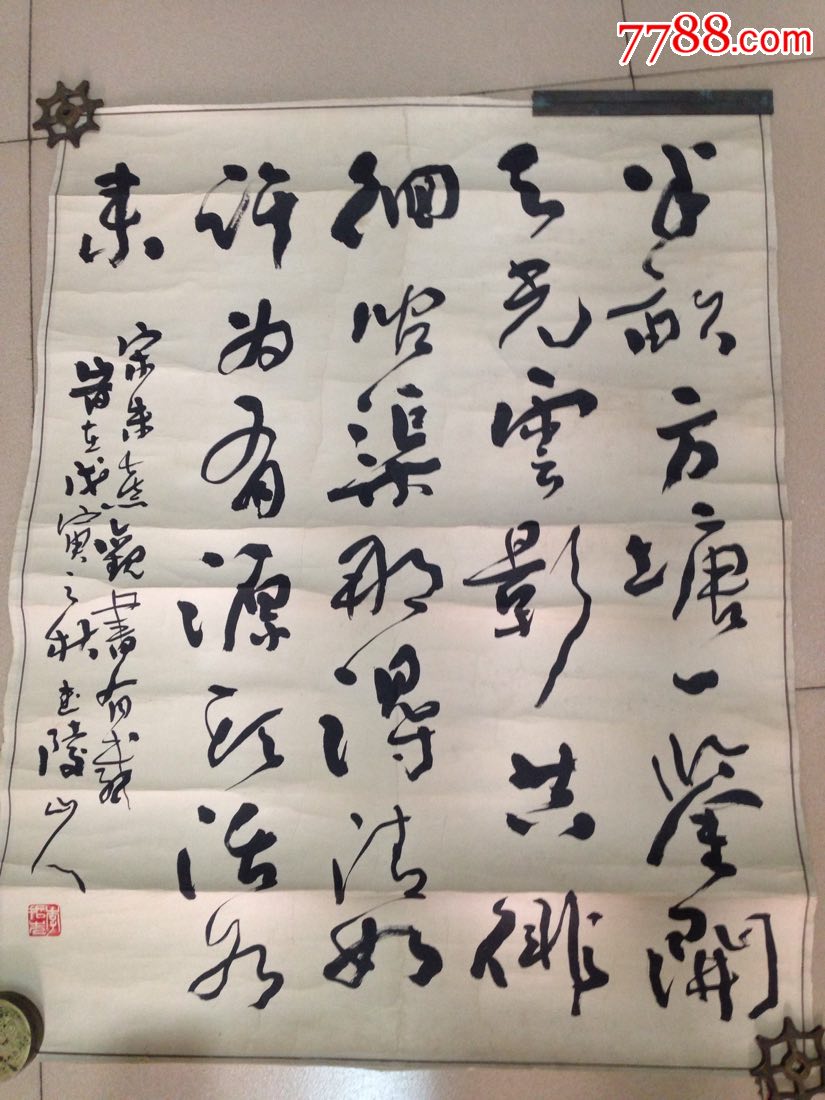 7788.com
半畝方塘一鑒開
天光雲影共徘
徊问渠那得清如
許为有源头活水
来
宋朱熹觀書有感
旹在戊寅之秋陵山人